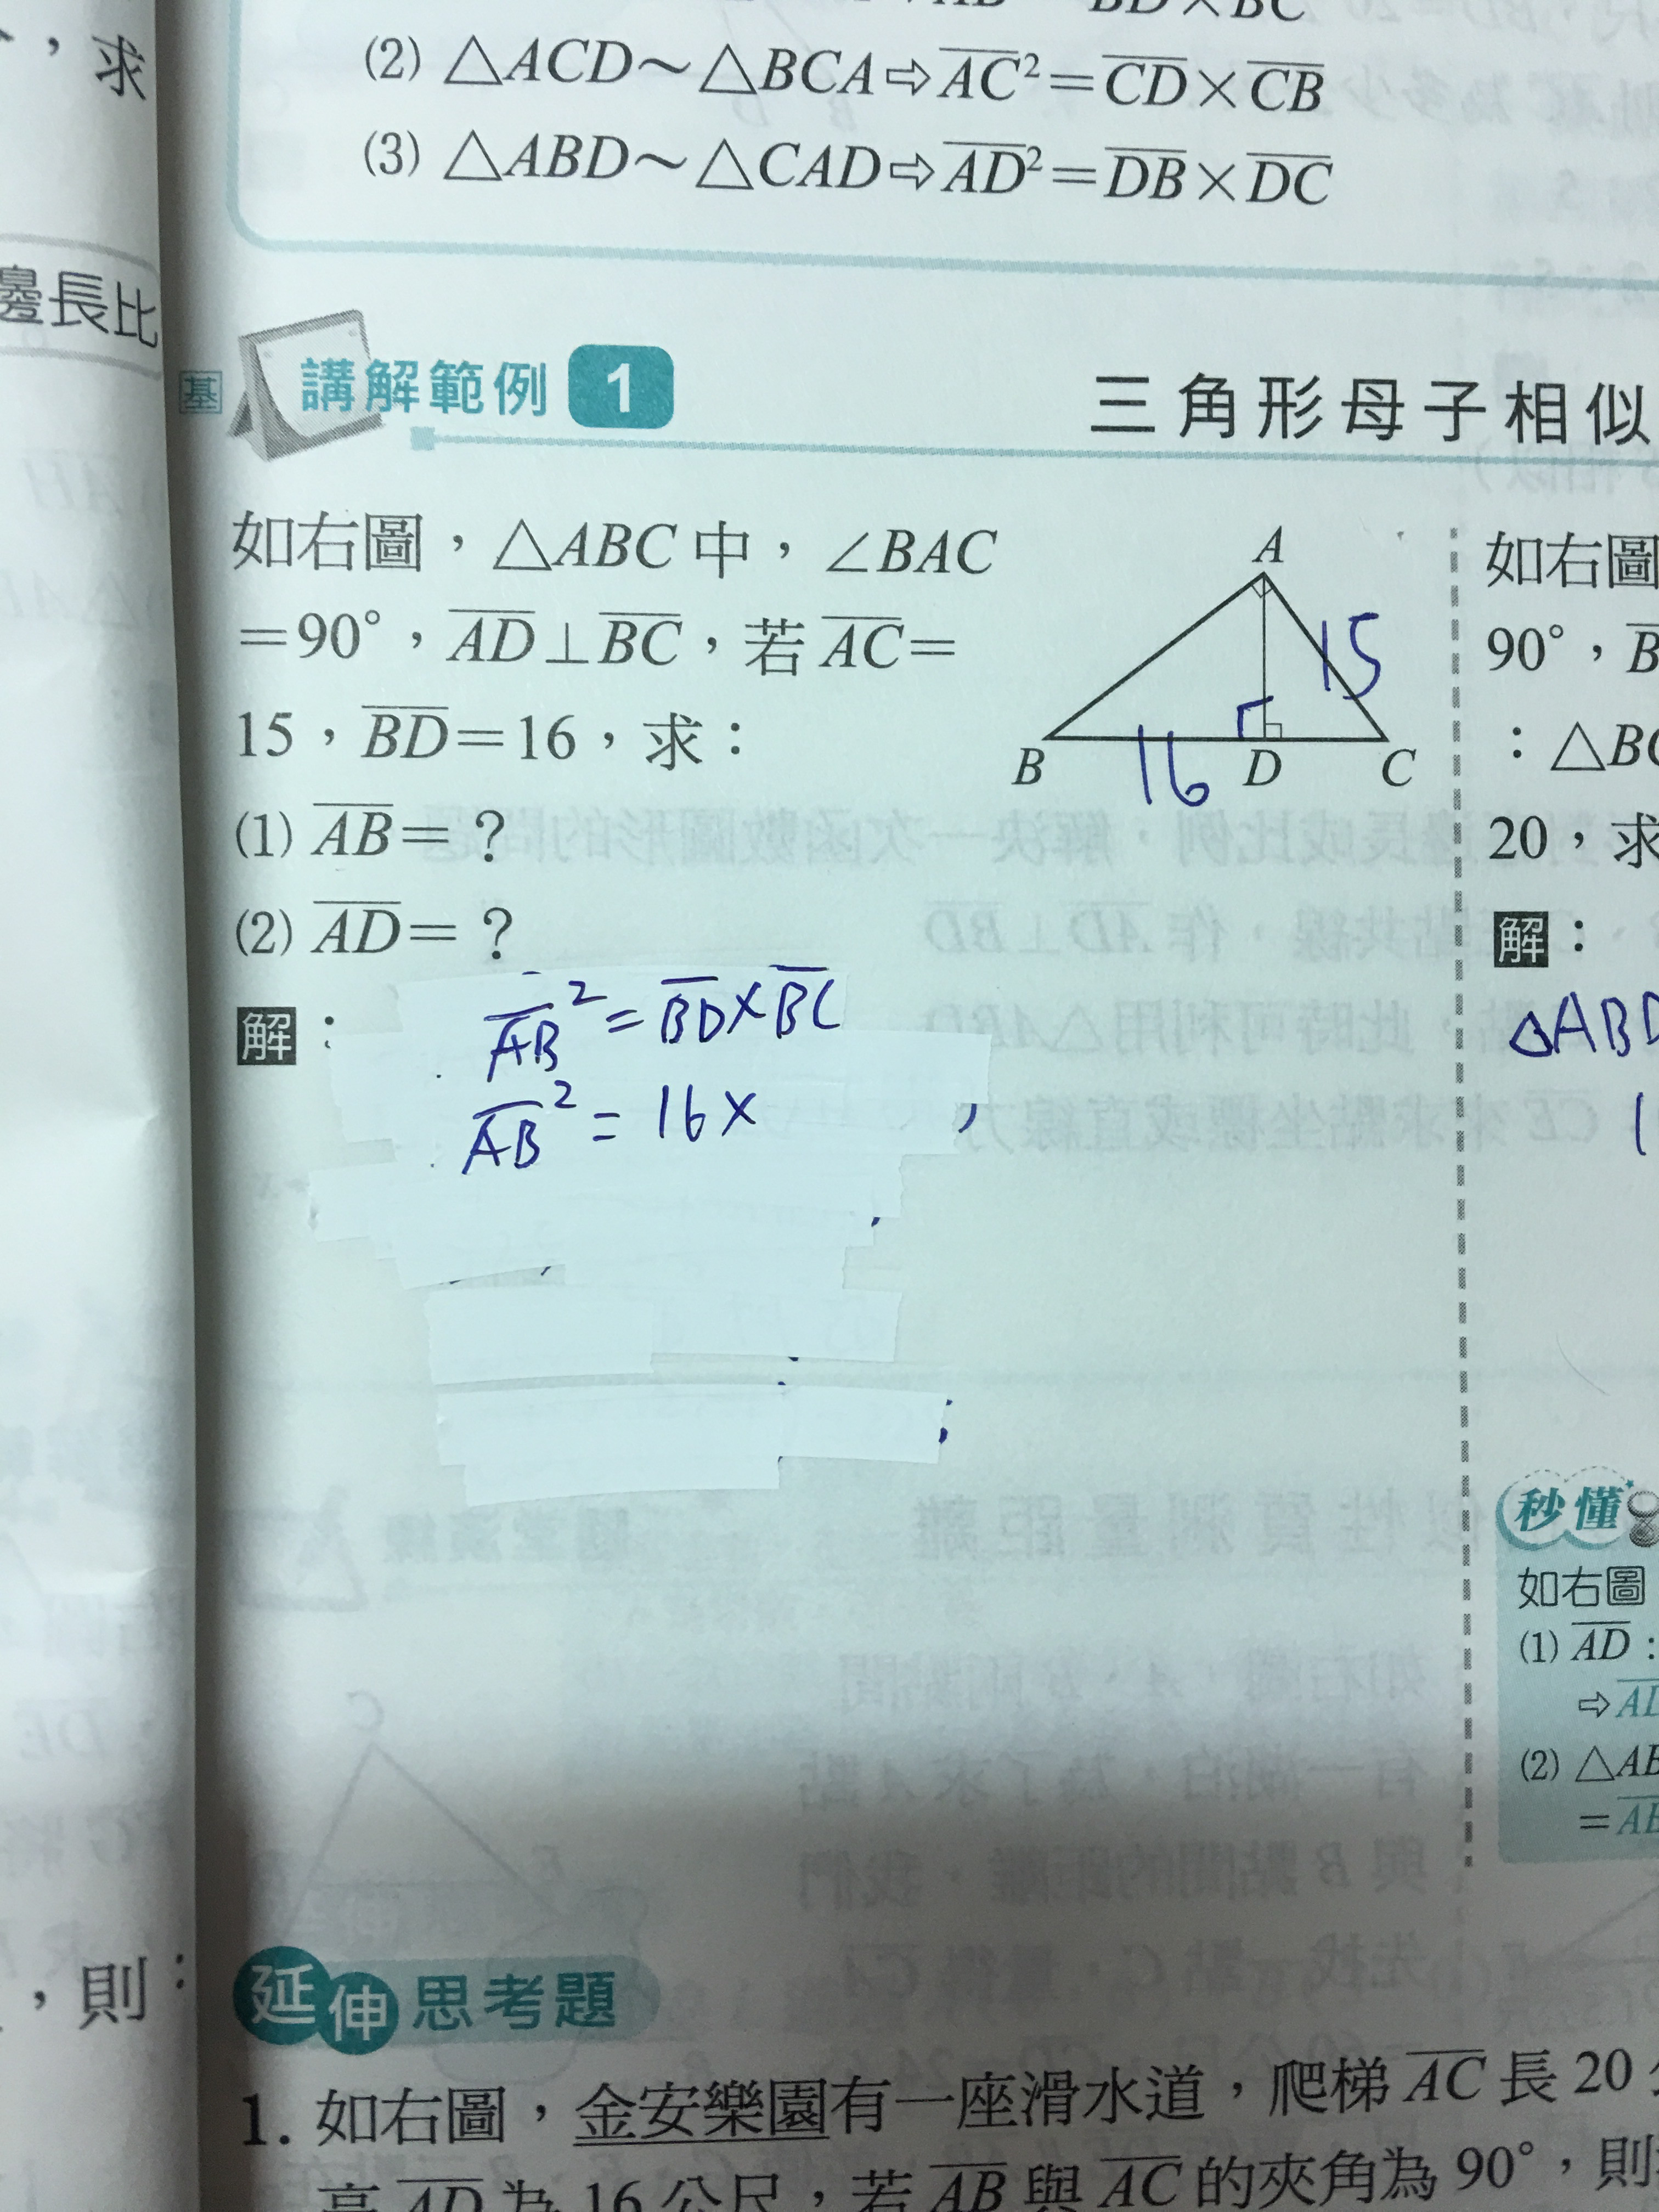 BD×BC
(2) △ACD～△BCA⇨AC²=CD×CB
(3) △ABD～△CAD⇨AD²=DB×DC
，求
邊長比
基 講解範例 1
三角形母子相似
如右圖，△ABC中，∠BAC
=90°，AD⊥BC，若AC=
15，BD=16，求：
(1) AB=？
(2) AD=？
A
15
B
16
D
C
解：
AB²=BD×BC
AB²=16×
如右圖
90°，B
：△BC
20，求
解：
△ABD
秒懂
如右圖
(1) AD：
⇨AD
(2) △AB
=AB
，則：
延伸思考題
1. 如右圖，金安樂園有一座滑水道，爬梯AC長20
高AD為16公尺，若AB與AC的夾角為90°，則